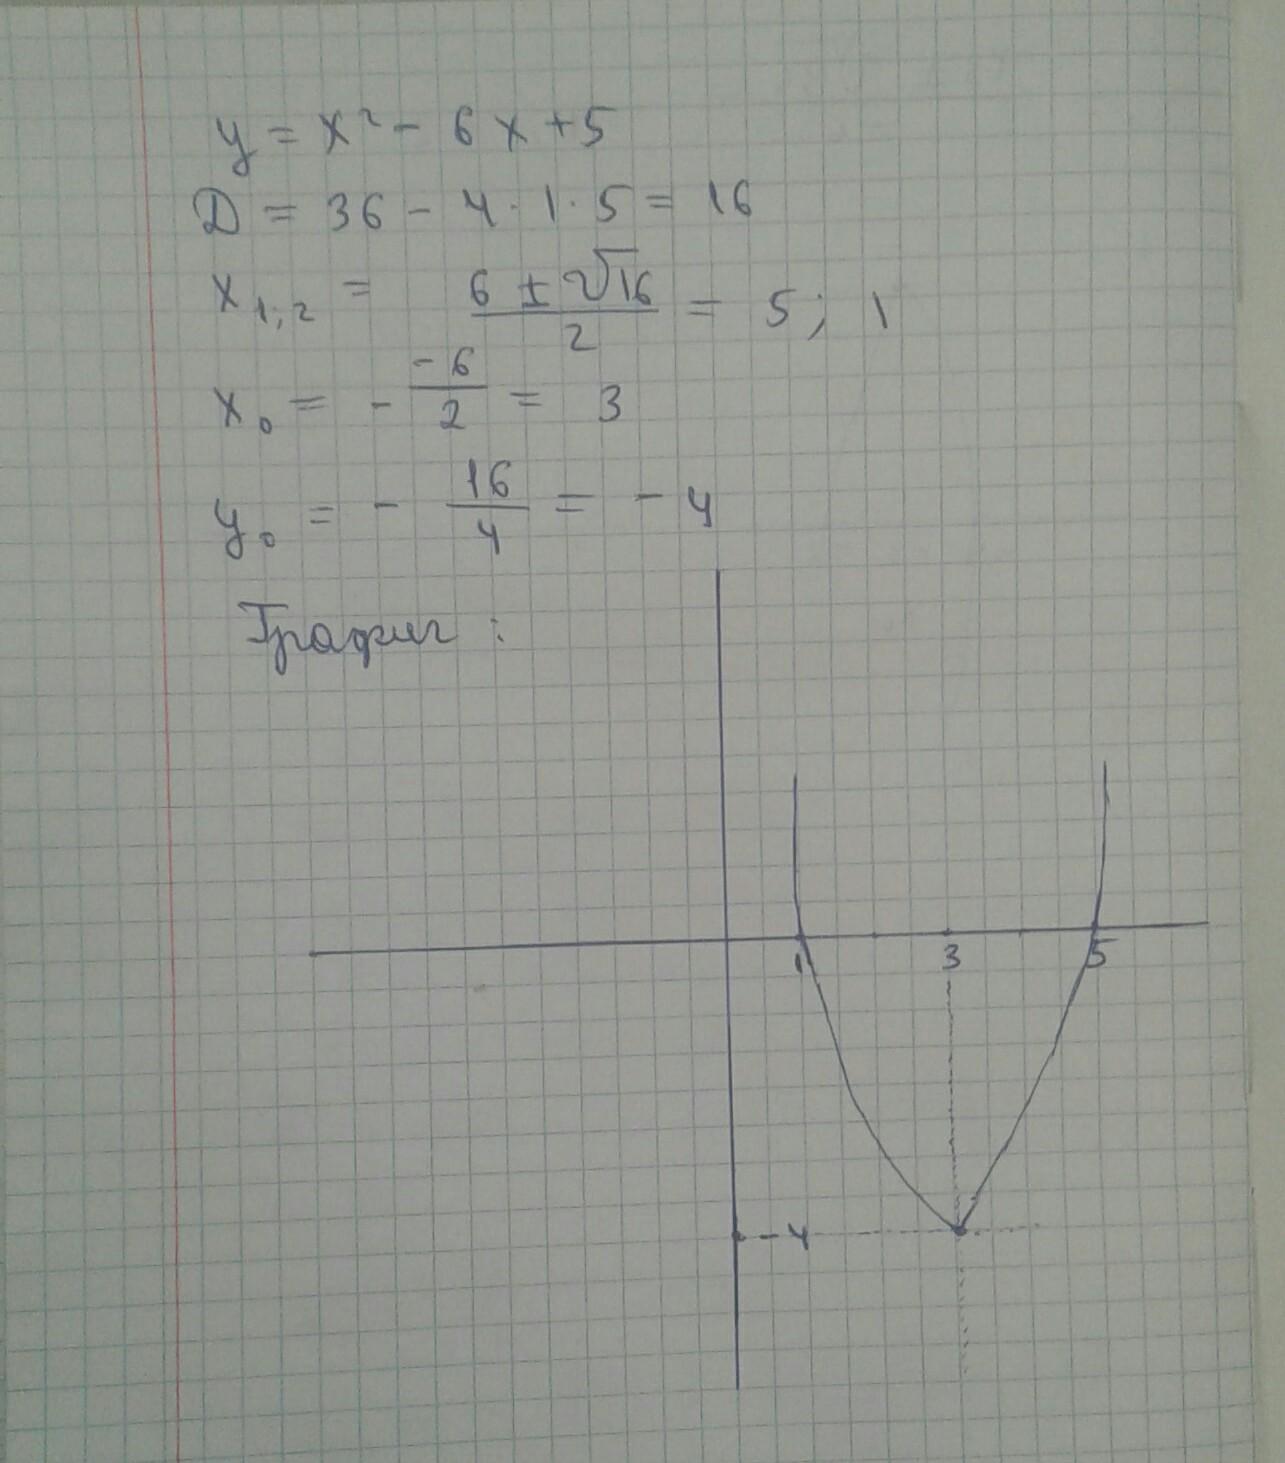 y = x² - 6x + 5
D = 36 - 4 · 1 · 5 = 16
x₁;₂ = (6 ± √16)/2 = 5; 1
x₀ = - (-6)/2 = 3
y₀ = - 16/4 = - 4
График:
1 3 5
-4